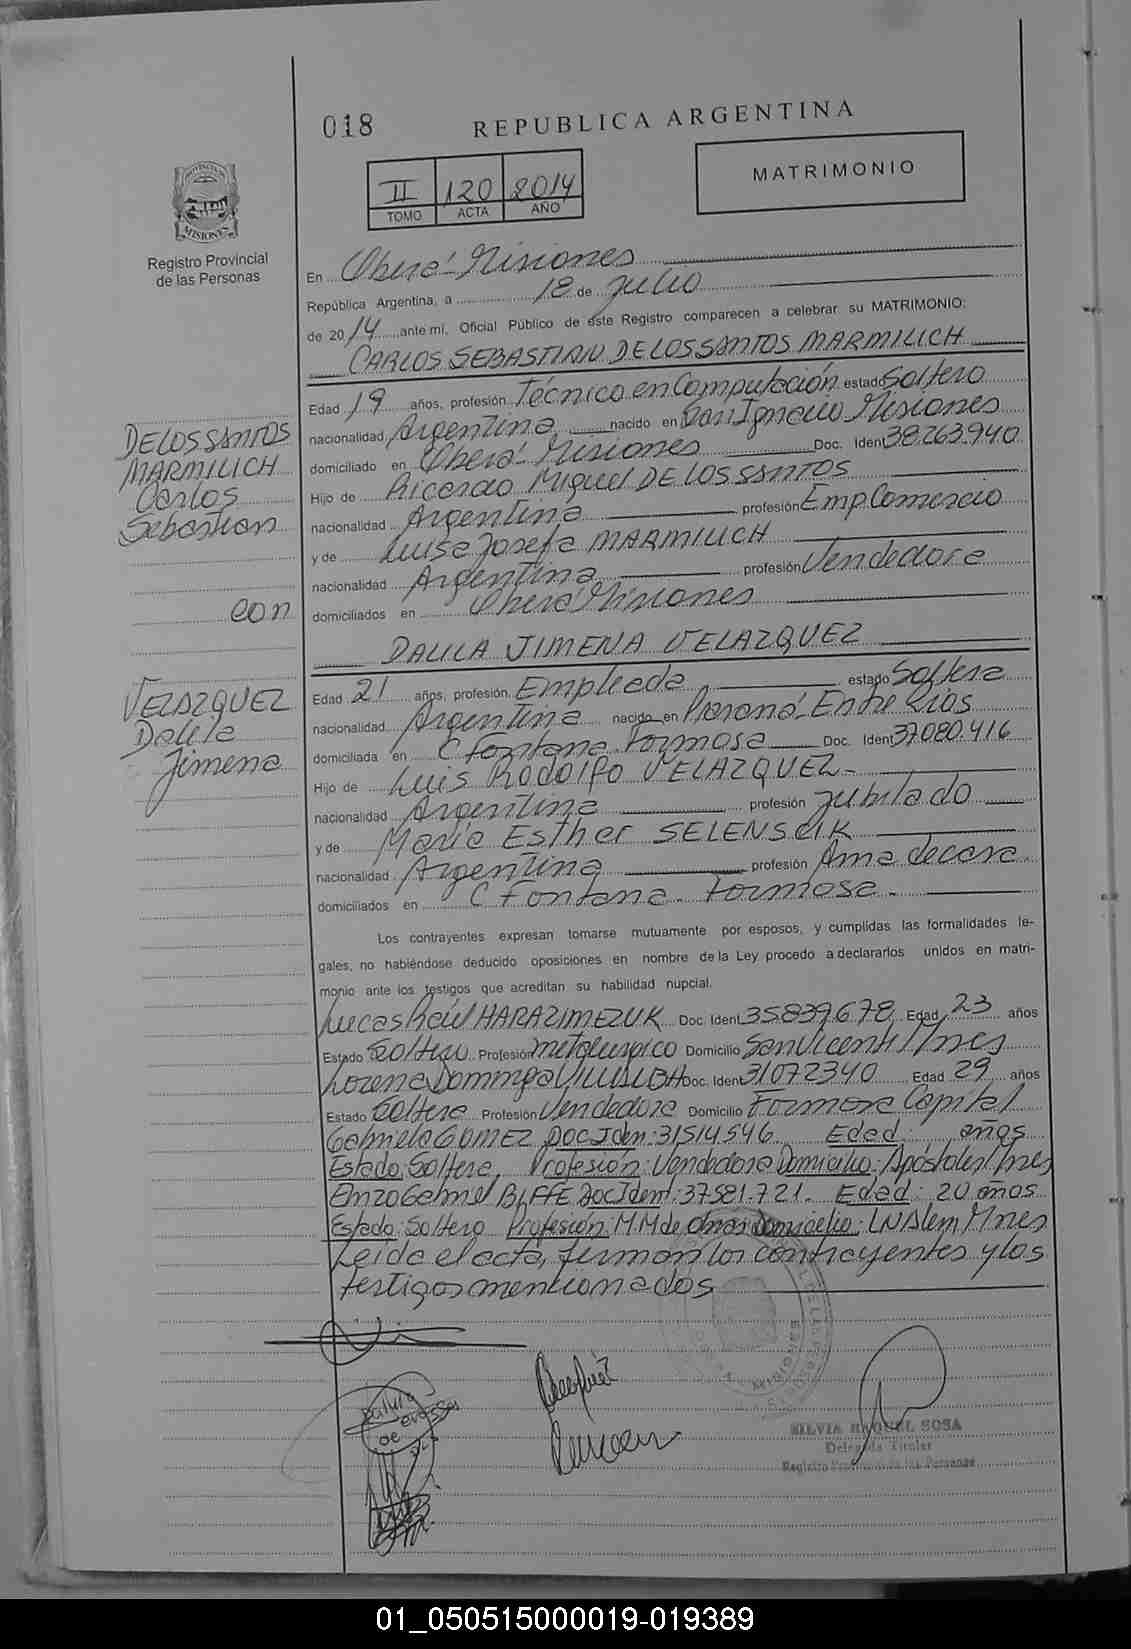 018
REPUBLICA ARGENTINA
II 120 2014
TOMO ACTA AÑO
MATRIMONIO
PROVINCIA DE
MISIONES
Registro Provincial
de las Personas
En Oberá - Misiones
República Argentina, a 18 de Julio
de 2014 ante mí, Oficial Público de este Registro comparecen a celebrar su MATRIMONIO:
CARLOS SEBASTIAN DE LOS SANTOS MARMILICH
Edad 19 años, profesión Técnico en Computación estado Soltero
nacionalidad Argentina nacido en San Ignacio Misiones
domiciliado en Oberá - Misiones Doc. Iden 38.263.940
Hijo de Ricardo Miguel DE LOS SANTOS
nacionalidad Argentina profesión Emp Comercio
y de Luisa Josefa MARMILICH
nacionalidad Argentina profesión Vendedora
domiciliados en Oberá Misiones
DE LOS SANTOS
MARMILICH
Carlos
Sebastian
con
VELAZQUEZ
Dalila
Jimena
DALILA JIMENA VELAZQUEZ
Edad 21 años, profesión Empleada estado Soltera
nacionalidad Argentina nacido en Paraná - Entre Ríos
domiciliada en C Fontana. Formosa Doc. Ident 37080.416
Hijo de Luis Rodolfo VELAZQUEZ -
nacionalidad Argentina profesión Jubilado
y de Maria Esther SELENSCIK
nacionalidad Argentina profesión Ama de casa.
domiciliados en C Fontana. Formosa.
Los contrayentes expresan tomarse mutuamente por esposos, y cumplidas las formalidades le-
gales, no habiéndose deducido oposiciones en nombre de la Ley procedo a declararlos unidos en matri-
monio ante los testigos que acreditan su habilidad nupcial.
Lucas Raúl HARAZIMEZUK Doc. Ident 35839678 Edad 23 años
Estado Soltero Profesión metalúrgico Domicilio San Vicente Mnes
Lorena Dominga VILLALBA Doc. Ident 31072340 Edad 29 años
Estado Soltera Profesión Vendedora Domicilio Formosa Capital
Gabriela GOMEZ Doc Iden: 31514546 Edad años
Estado: Soltera Profesión: Vendedora Domicilio: Apóstoles Mnes
Enzo Gabriel Doc Ident: 37581.721. Edad: 20 años
Estado: Soltero Profesión: M.M de Obras Domicilio: LN Alem Mnes
Leída el acta, firman los contrayentes y los
testigos mencionados
SILVIA RAQUEL SOSA
Delegada Titular
Registro Provincial de las Personas
01_050515000019-019389